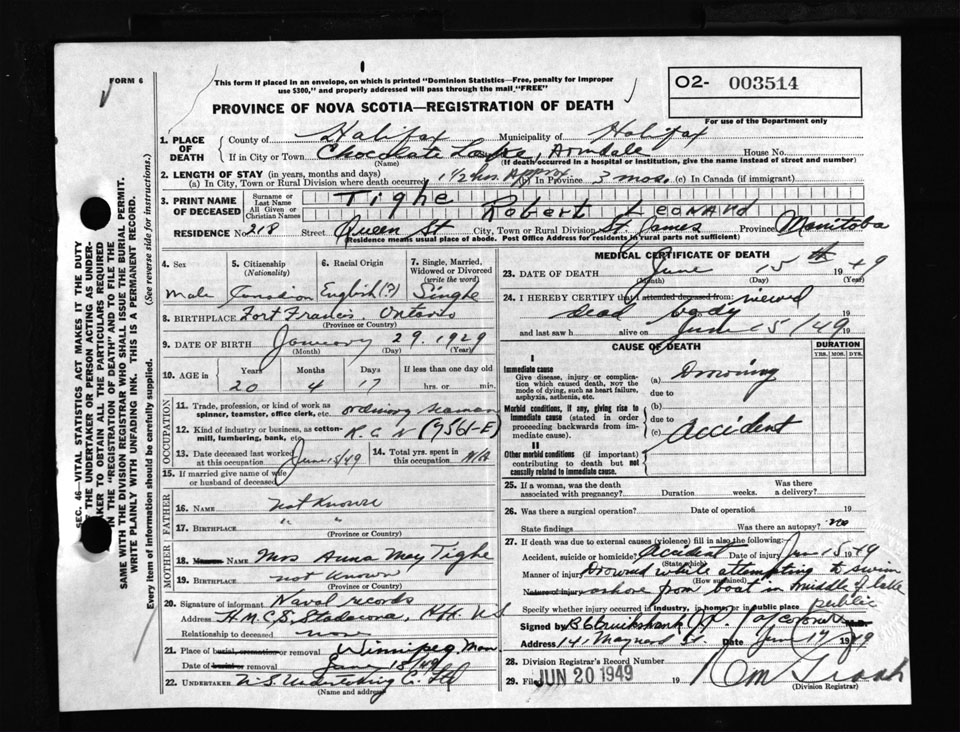 FORM 6
This form if placed in an envelope, on which is printed "Dominion Statistics—Free, penalty for improper
use $300," and properly addressed will pass through the mail "FREE"
PROVINCE OF NOVA SCOTIA—REGISTRATION OF DEATH
02- 003514
For use of the Department only
1. PLACE OF DEATH
County of Halifax Municipality of Halifax
If in City or Town Chocolate Lake, Armdale House No.
(Name) (If death occurred in a hospital or institution, give the name instead of street and number)
2. LENGTH OF STAY (in years, months and days)
(a) In City, Town or Rural Division where death occurred 1 1/2 hrs. Approx (b) In Province 3 mos. (c) In Canada (if immigrant)
3. PRINT NAME OF DECEASED
Surname or Last Name Tighe
All Given or Christian Names Robert Leonard
RESIDENCE No. 218 Street Queen St City, Town or Rural Division St. James Province Manitoba
(Residence means usual place of abode. Post Office Address for residents in rural parts not sufficient)
4. Sex
Male
5. Citizenship (Nationality)
Canadian
6. Racial Origin
English (?)
7. Single, Married, Widowed or Divorced (write the word)
Single
8. BIRTHPLACE Fort Francis, Ontario
(Province or Country)
9. DATE OF BIRTH January 29. 1929
(Month) (Day) (Year)
10. AGE in Years Months Days If less than one day old
20 4 17 hrs. or min.
OCCUPATION
11. Trade, profession, or kind of work as spinner, teamster, office clerk, etc. ordinary seaman
12. Kind of industry or business, as cotton-mill, lumbering, bank, etc. R.C.N (9561-E)
13. Date deceased last worked at this occupation June 15/49
14. Total yrs. spent in this occupation
15. If married give name of wife or husband of deceased
FATHER
16. NAME not known
17. BIRTHPLACE " "
(Province or Country)
MOTHER
18. NAME Mrs Anna May Tighe
19. BIRTHPLACE not known
(Province or Country)
20. Signature of informant Naval records
Address H.M.C.S. Stadacona, Hfx. NS
Relationship to deceased none
21. Place of burial, cremation or removal Winnipeg, Man
Date of burial or removal June 18/49
22. UNDERTAKER N.S. Undertaking C. Ltd
(Name and address)
MEDICAL CERTIFICATE OF DEATH
23. DATE OF DEATH June 15th 1949
(Month) (Day) (Year)
24. I HEREBY CERTIFY that I attended deceased from: viewed
dead body 19
and last saw h alive on June 15/49 19
CAUSE OF DEATH
DURATION
YRS. MOS. DYS.
I
Immediate cause
Give disease, injury or complication which caused death, NOT the mode of dying, such as heart failure, asphyxia, asthenia, etc.
(a) Drowning
due to
Morbid conditions, if any, giving rise to immediate cause (stated in order proceeding backwards from immediate cause).
(b)
due to
(c) Accident
II
Other morbid conditions (if important) contributing to death but not causally related to immediate cause.
25. If a woman, was the death associated with pregnancy? Duration weeks. Was there a delivery?
26. Was there a surgical operation? Date of operation 19
State findings Was there an autopsy? no
27. If death was due to external causes (violence) fill in also the following:
Accident, suicide or homicide? Accident Date of injury Jun 15 1949
(State which)
Manner of injury Drowned while attempting to swim
(How sustained)
Nature of injury ashore from boat in middle of lake
Specify whether injury occurred in industry, in home, or in public place public
Signed by B E Cruikshank J.P. coroner M.D.
Address 141 Maynard St. Date Jun 17 1949
28. Division Registrar's Record Number
29. Filed JUN 20 1949 19
(Division Registrar)
SEC. 46—VITAL STATISTICS ACT MAKES IT THE DUTY
OF THE UNDERTAKER OR PERSON ACTING AS UNDER-
TAKER TO OBTAIN ALL THE PARTICULARS REQUIRED
IN THE "REGISTRATION OF DEATH" AND TO FILE THE
SAME WITH THE DIVISION REGISTRAR WHO SHALL ISSUE THE BURIAL PERMIT.
WRITE PLAINLY WITH UNFADING INK. THIS IS A PERMANENT RECORD.
Every item of information should be carefully supplied. (See reverse side for instructions.)